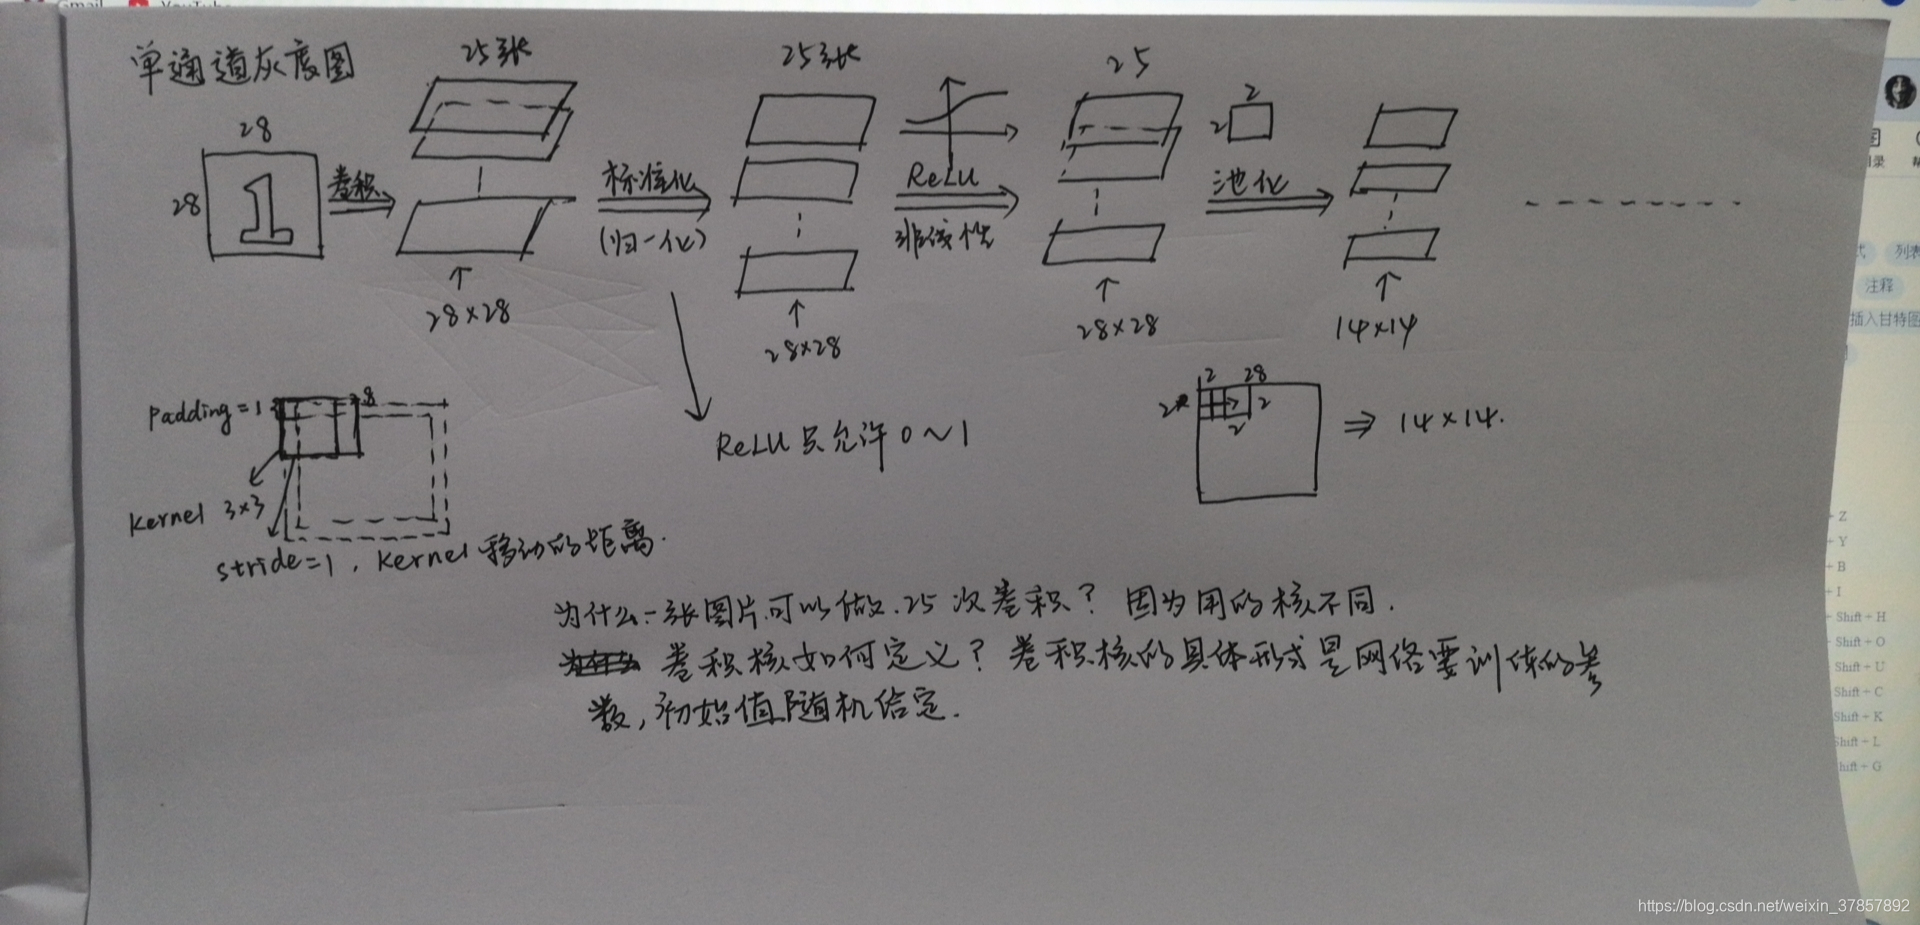 Gmail
YouTube
单通道灰度图
25张
25张
25
2
2
28
28
1
卷积
标准化
(归一化)
ReLU
非线性
池化
28×28
28×28
28×28
14×14
Padding=1
Kernel 3×3
stride=1, Kernel 移动的距离.
ReLU 只允许 0~1
2
28
2
2
2
⇒ 14×14.
为什么一张图片可以做 25 次卷积? 因为用的核不同.
卷积核如何定义? 卷积核的具体形式是网络要训练的参
数, 初始值随机给定.
列表
注释
插入甘特图
+ Z
+ Y
+ B
+ I
Shift + H
Shift + O
Shift + U
Shift + C
Shift + K
Shift + L
Shift + G
https://blog.csdn.net/weixin_37857892